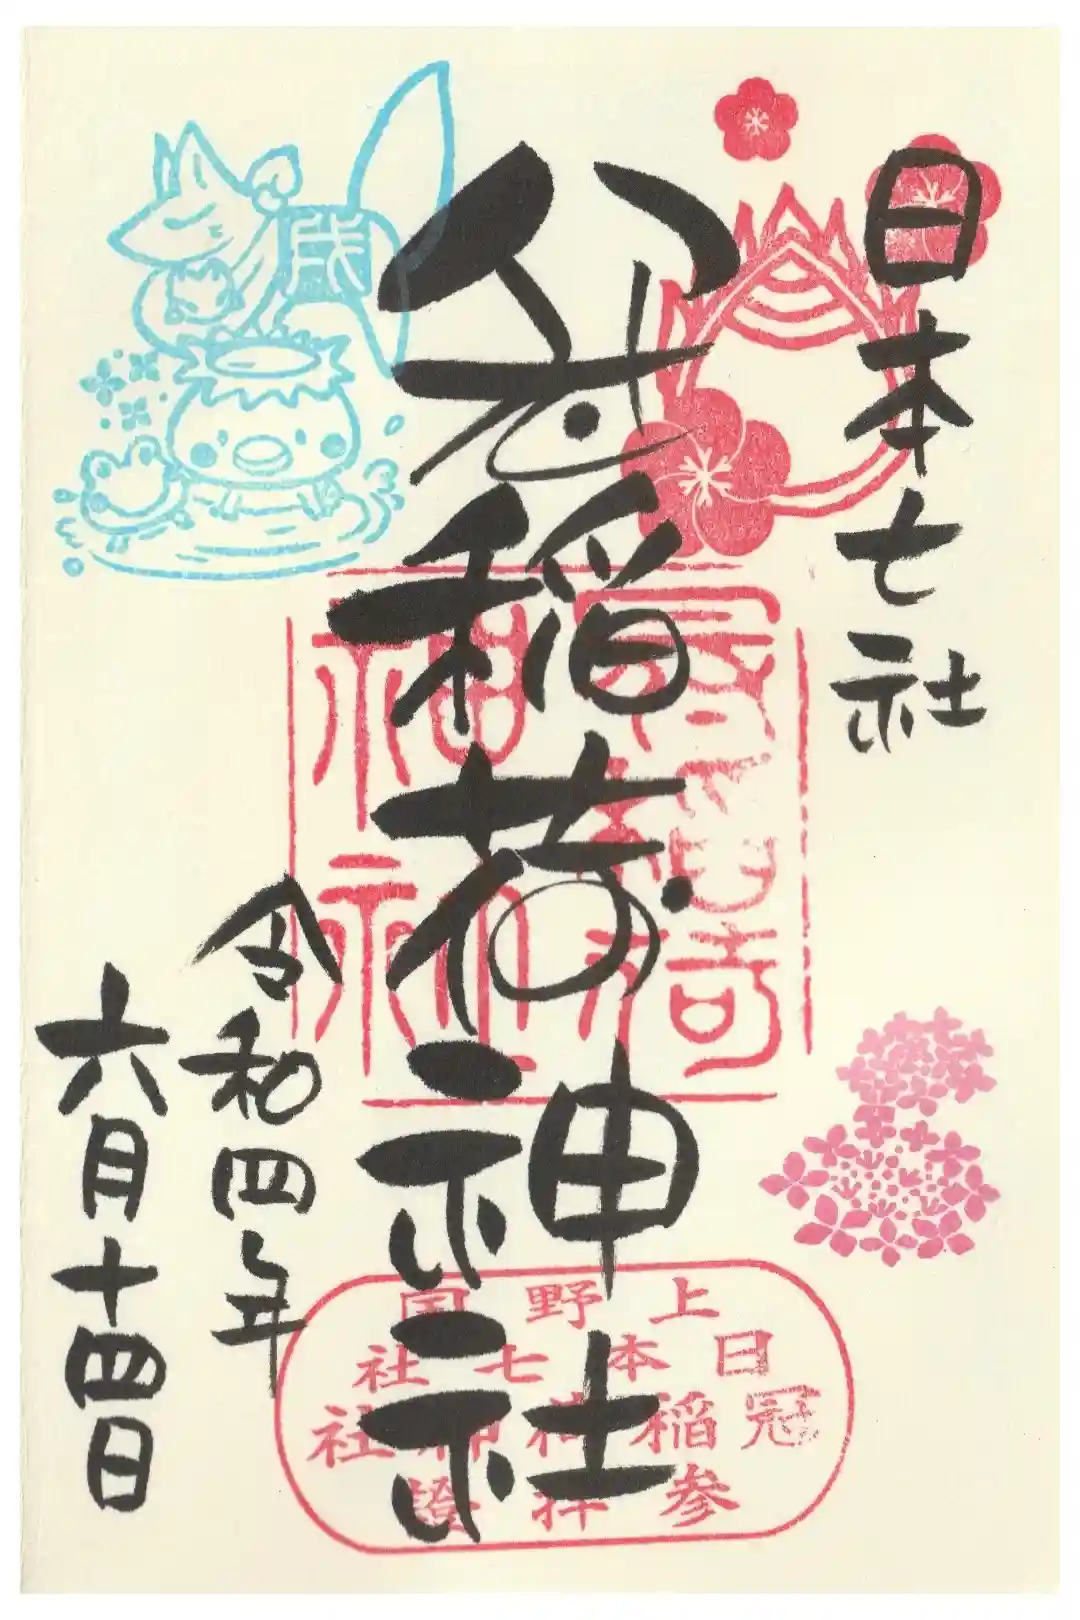 日本七社
冠稲荷神社
令和四年
六月十四日
戌
冠稲荷
神社
上野国
日本七社
冠稲荷神社
参拝證